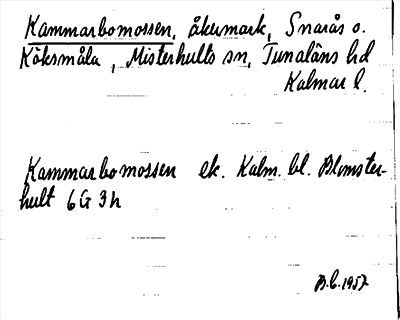 Kammarbomossen, åkermark, Snarås o.
Köksmåla, Misterhults sn, Tunaläns hd
Kalmar l.
Kammarbomossen ek. Kalm. bl. Blomster-
hult 6G 3h
B.C. 1957